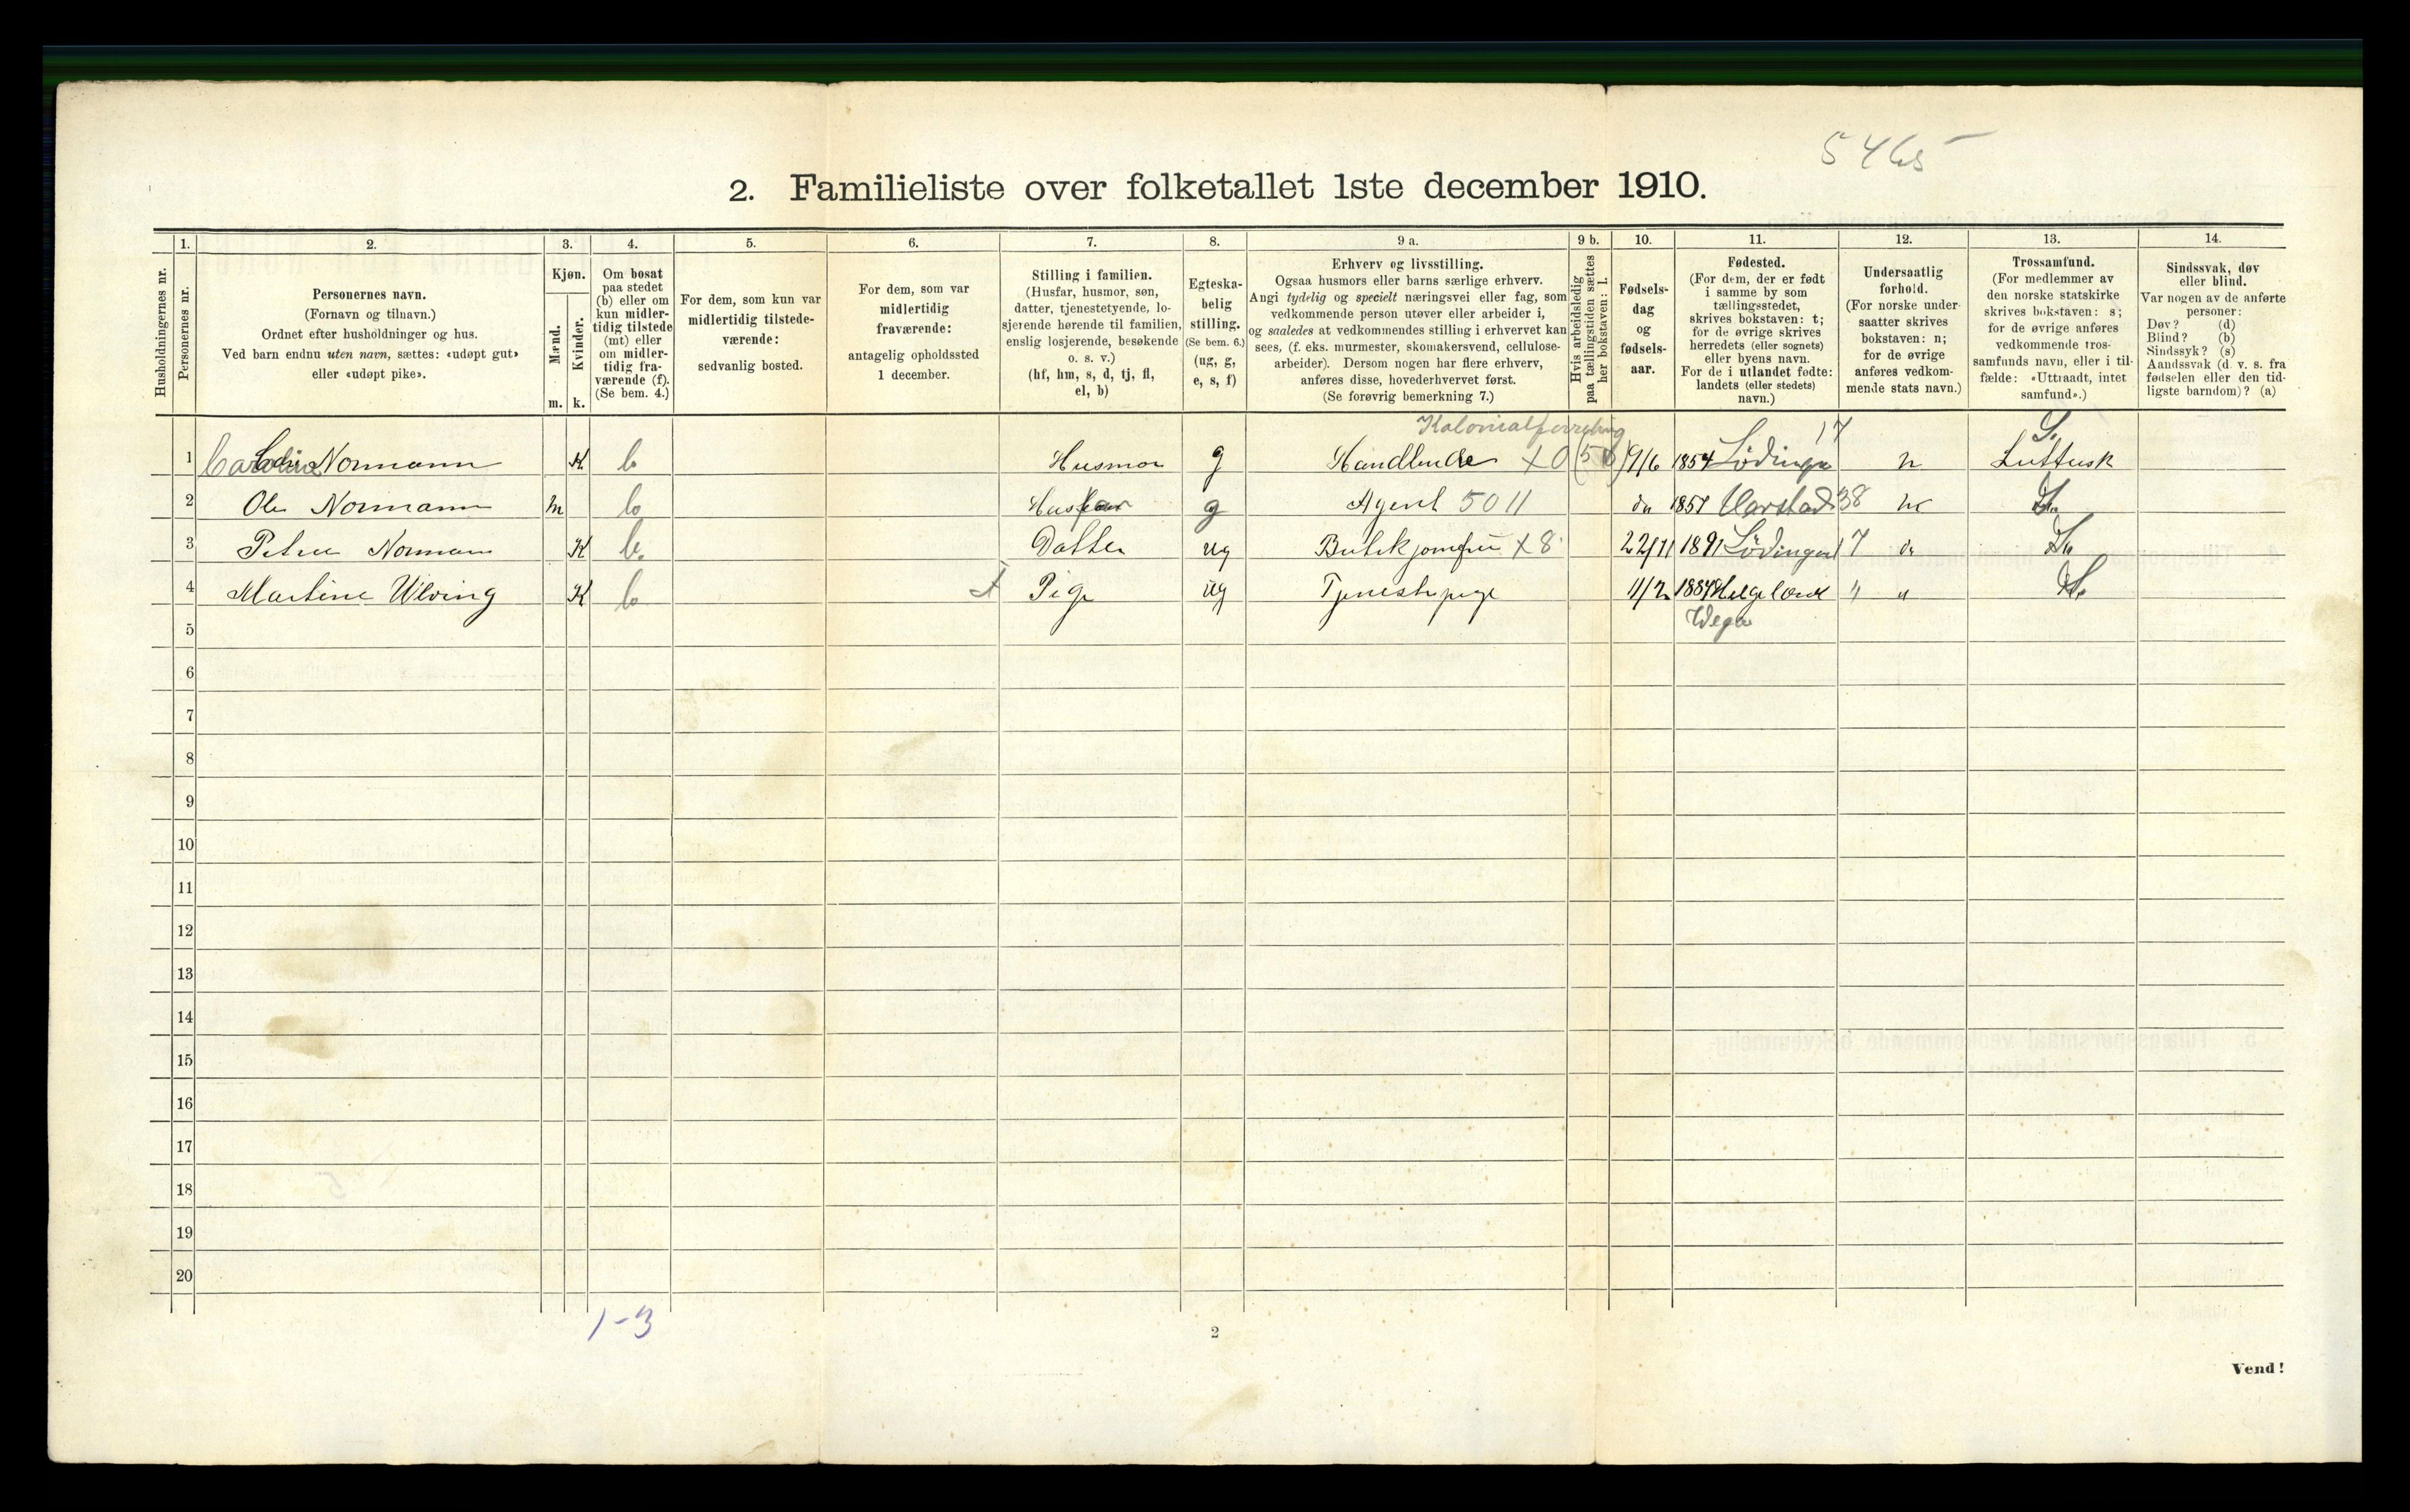 5465
2. Familieliste over folketallet 1ste december 1910.
Husholdningernes nr.
1. Personernes nr.
2. Personernes navn.
(Fornavn og tilnavn.)
Ordnet efter husholdninger og hus.
Ved barn endnu uten navn, sættes: «udøpt gut»
eller «udøpt pike».
3. Kjøn.
Mænd. m.
Kvinder. k.
4. Om bosat
paa stedet
(b) eller om
kun midler-
tidig tilstede
(mt) eller
om midler-
tidig fra-
værende (f).
(Se bem. 4.)
5. For dem, som kun var
midlertidig tilstede-
værende:
sedvanlig bosted.
6. For dem, som var
midlertidig
fraværende:
antagelig opholdssted
1 december.
7. Stilling i familien.
(Husfar, husmor, søn,
datter, tjenestetyende, lo-
sjerende hørende til familien,
enslig losjerende, besøkende
o. s. v.)
(hf, hm, s, d, tj, fl,
el, b)
8. Egteska-
belig
stilling.
(Se bem. 6.)
(ug, g,
e, s, f)
9 a. Erhverv og livsstilling.
Ogsaa husmors eller barns særlige erhverv.
Angi tydelig og specielt næringsvei eller fag, som
vedkommende person utøver eller arbeider i,
og saaledes at vedkommendes stilling i erhvervet kan
sees, (f. eks. murmester, skomakersvend, cellulose-
arbeider). Dersom nogen har flere erhverv,
anføres disse, hovederhvervet først.
(Se forøvrig bemerkning 7.)
9 b. Hvis arbeidsledig
paa tællingstiden sættes
her bokstaven: l.
10. Fødsels-
dag
og
fødsels-
aar.
11. Fødested.
(For dem, der er født
i samme by som
tællingsstedet,
skrives bokstaven: t;
for de øvrige skrives
herredets (eller sognets)
eller byens navn.
For de i utlandet fødte:
landets (eller stedets)
navn.)
12. Undersaatlig
forhold.
(For norske under-
saatter skrives
bokstaven: n;
for de øvrige
anføres vedkom-
mende stats navn.)
13. Trossamfund.
(For medlemmer av
den norske statskirke
skrives bokstaven: s;
for de øvrige anføres
vedkommende tros-
samfunds navn, eller i til-
fælde: «Uttraadt, intet
samfund».)
14. Sindssvak, døv
eller blind.
Var nogen av de anførte
personer:
Døv? (d)
Blind? (b)
Sindssyk? (s)
Aandssvak (d. v. s. fra
fødselen eller den tid-
ligste barndom)? (a)
Kolonialforretning 17 S.
1 Caroline Normann K b Husmor g x0 9/6 1854 Lödingen n Luttersk
2 Ole Normann m b Husfar g Agent 5011 do 1857 Harstad 38 n S.
3 Petra Normann K b. Datter ug Butikjomfru x8 22/11 1891 Lödingen 17 do S.
4 Martine Ulving K b Pige ug Tjenestepige 11/2 1887 Helgeland " " S.
5 Wega
6
7
8
9
10
11
12
13
14
15
16
17
18
19
20
1-3
2
Vend!